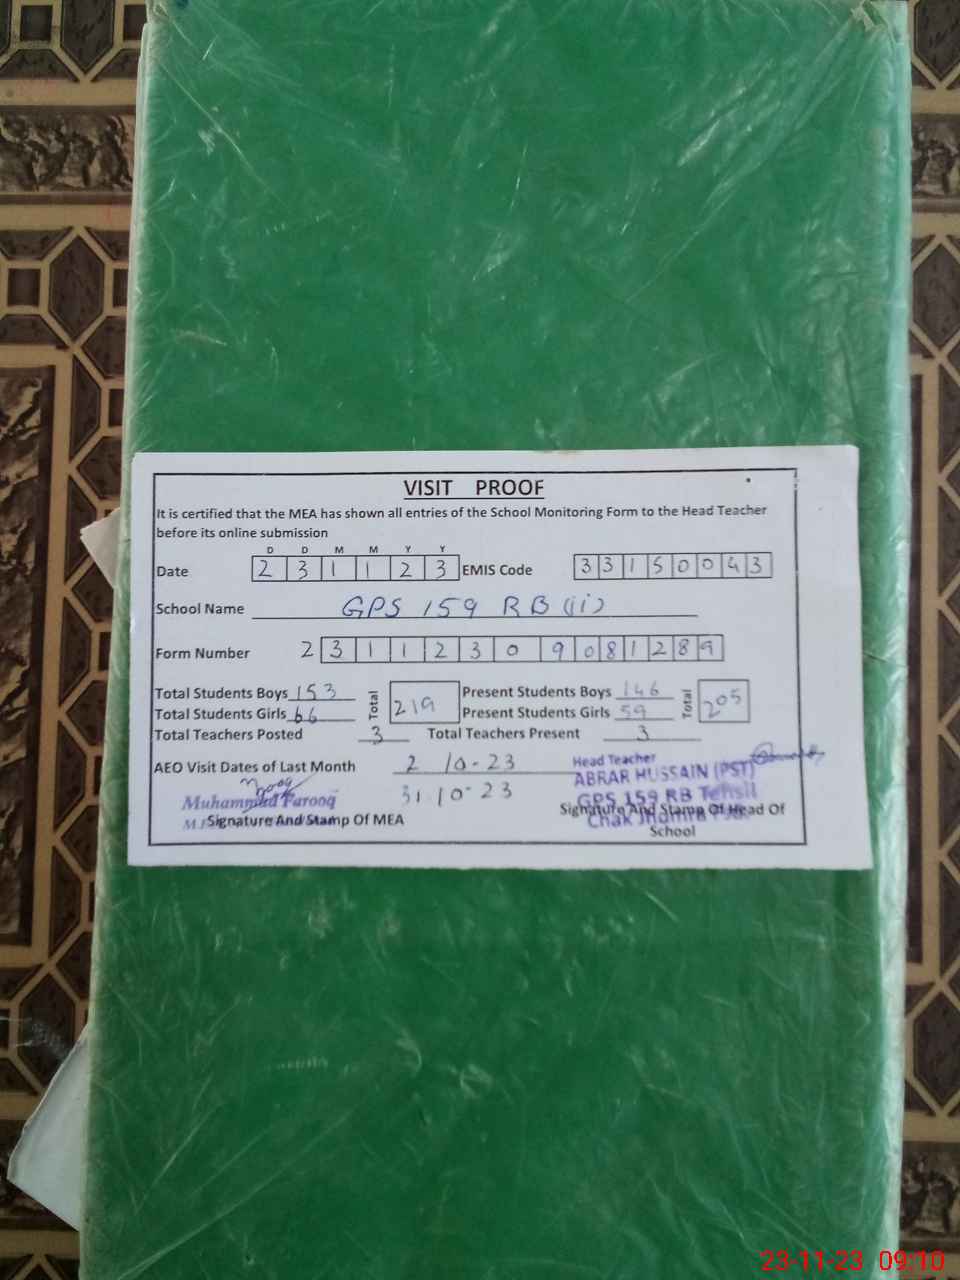 VISIT PROOF
It is certified that the MEA has shown all entries of the School Monitoring Form to the Head Teacher
before its online submission
D D M M Y Y
Date 2 3 1 1 2 3 EMIS Code 3 3 1 5 0 0 4 3
School Name GPS 159 RB (ii)
Form Number 2 3 1 1 2 3 0 9 0 8 1 2 8 9
Total Students Boys 153 Total 219 Present Students Boys 146 Total 205
Total Students Girls 66 Present Students Girls 59
Total Teachers Posted 3 Total Teachers Present 3
AEO Visit Dates of Last Month 2 10-23
31.10-23
Head Teacher
ABRAR HUSSAIN (PST)
GPS 159 RB Tehsil
Chak Jhumra
Muhammad Farooq
Signature And Stamp Of MEA
Signature And Stamp Of Head Of
School
23-11-23 09:10